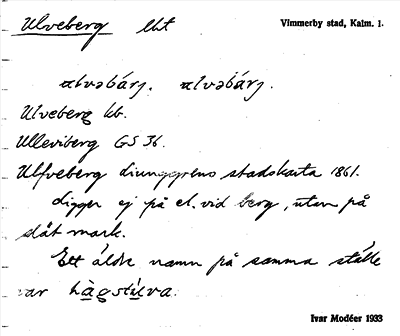 Ulveberg lht
Vimmerby stad, Kalm. l.
Ulveberg kb.
Ulleviberg GS 36.
Ulfveberg Ljunggrens stadskarta 1861.
Ligger ej på el. vid berg, utan på
slät mark.
Ett äldre namn på samma ställe
var hàgstúlva.
Ivar Modéer 1933